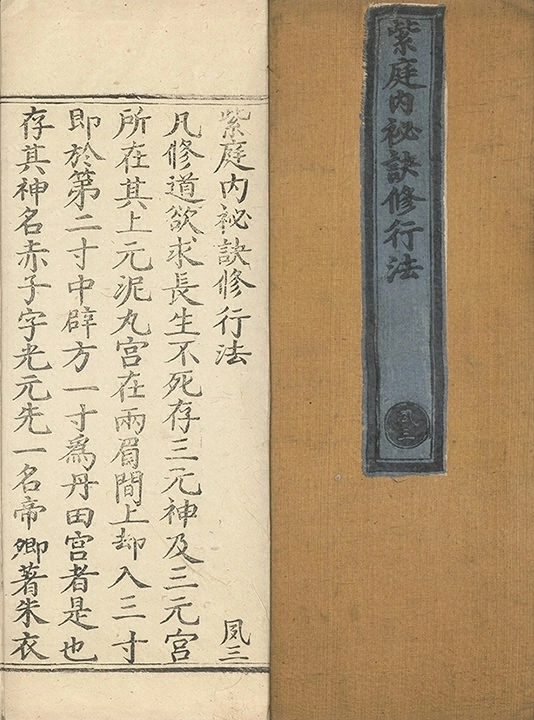 紫庭内祕訣修行法
夙三
紫庭内祕訣修行法
夙三
凡修道欲求長生不死存三元神及三元宮
所在其上元泥丸宮在兩眉間上却入三寸
即於第二寸中辟方一寸爲丹田宮者是也
存其神名赤子字光元先一名帝卿著朱衣